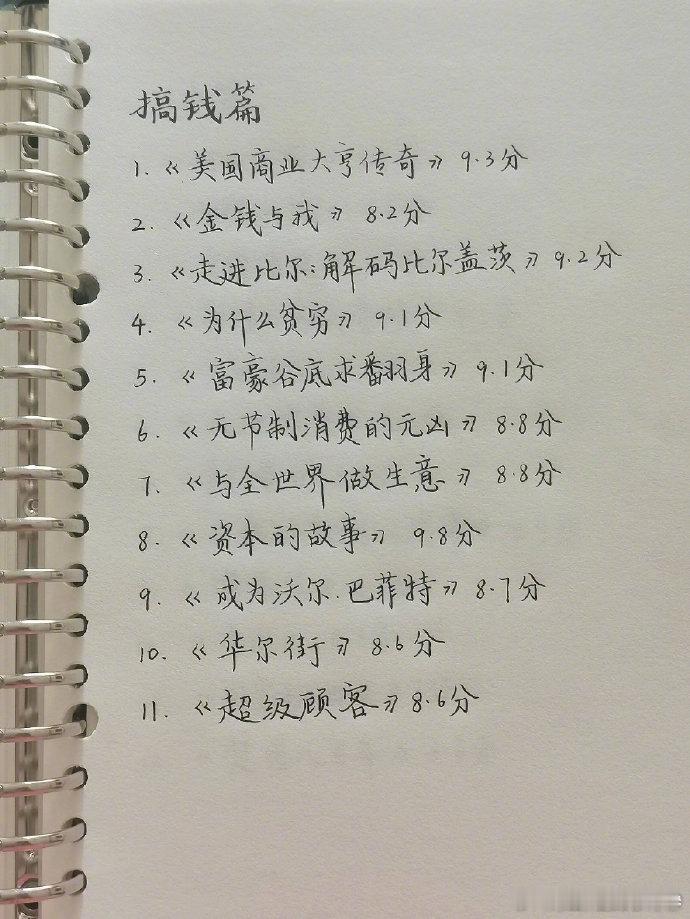 搞钱篇
1.《美国商业大亨传奇》9.3分
2.《金钱与我》8.2分
3.《走进比尔:解码比尔盖茨》9.2分
4.《为什么贫穷》9.1分
5.《富豪谷底求翻身》9.1分
6.《无节制消费的元凶》8.8分
7.《与全世界做生意》8.8分
8.《资本的故事》9.8分
9.《成为沃尔.巴菲特》8.7分
10.《华尔街》8.6分
11.《超级顾客》8.6分